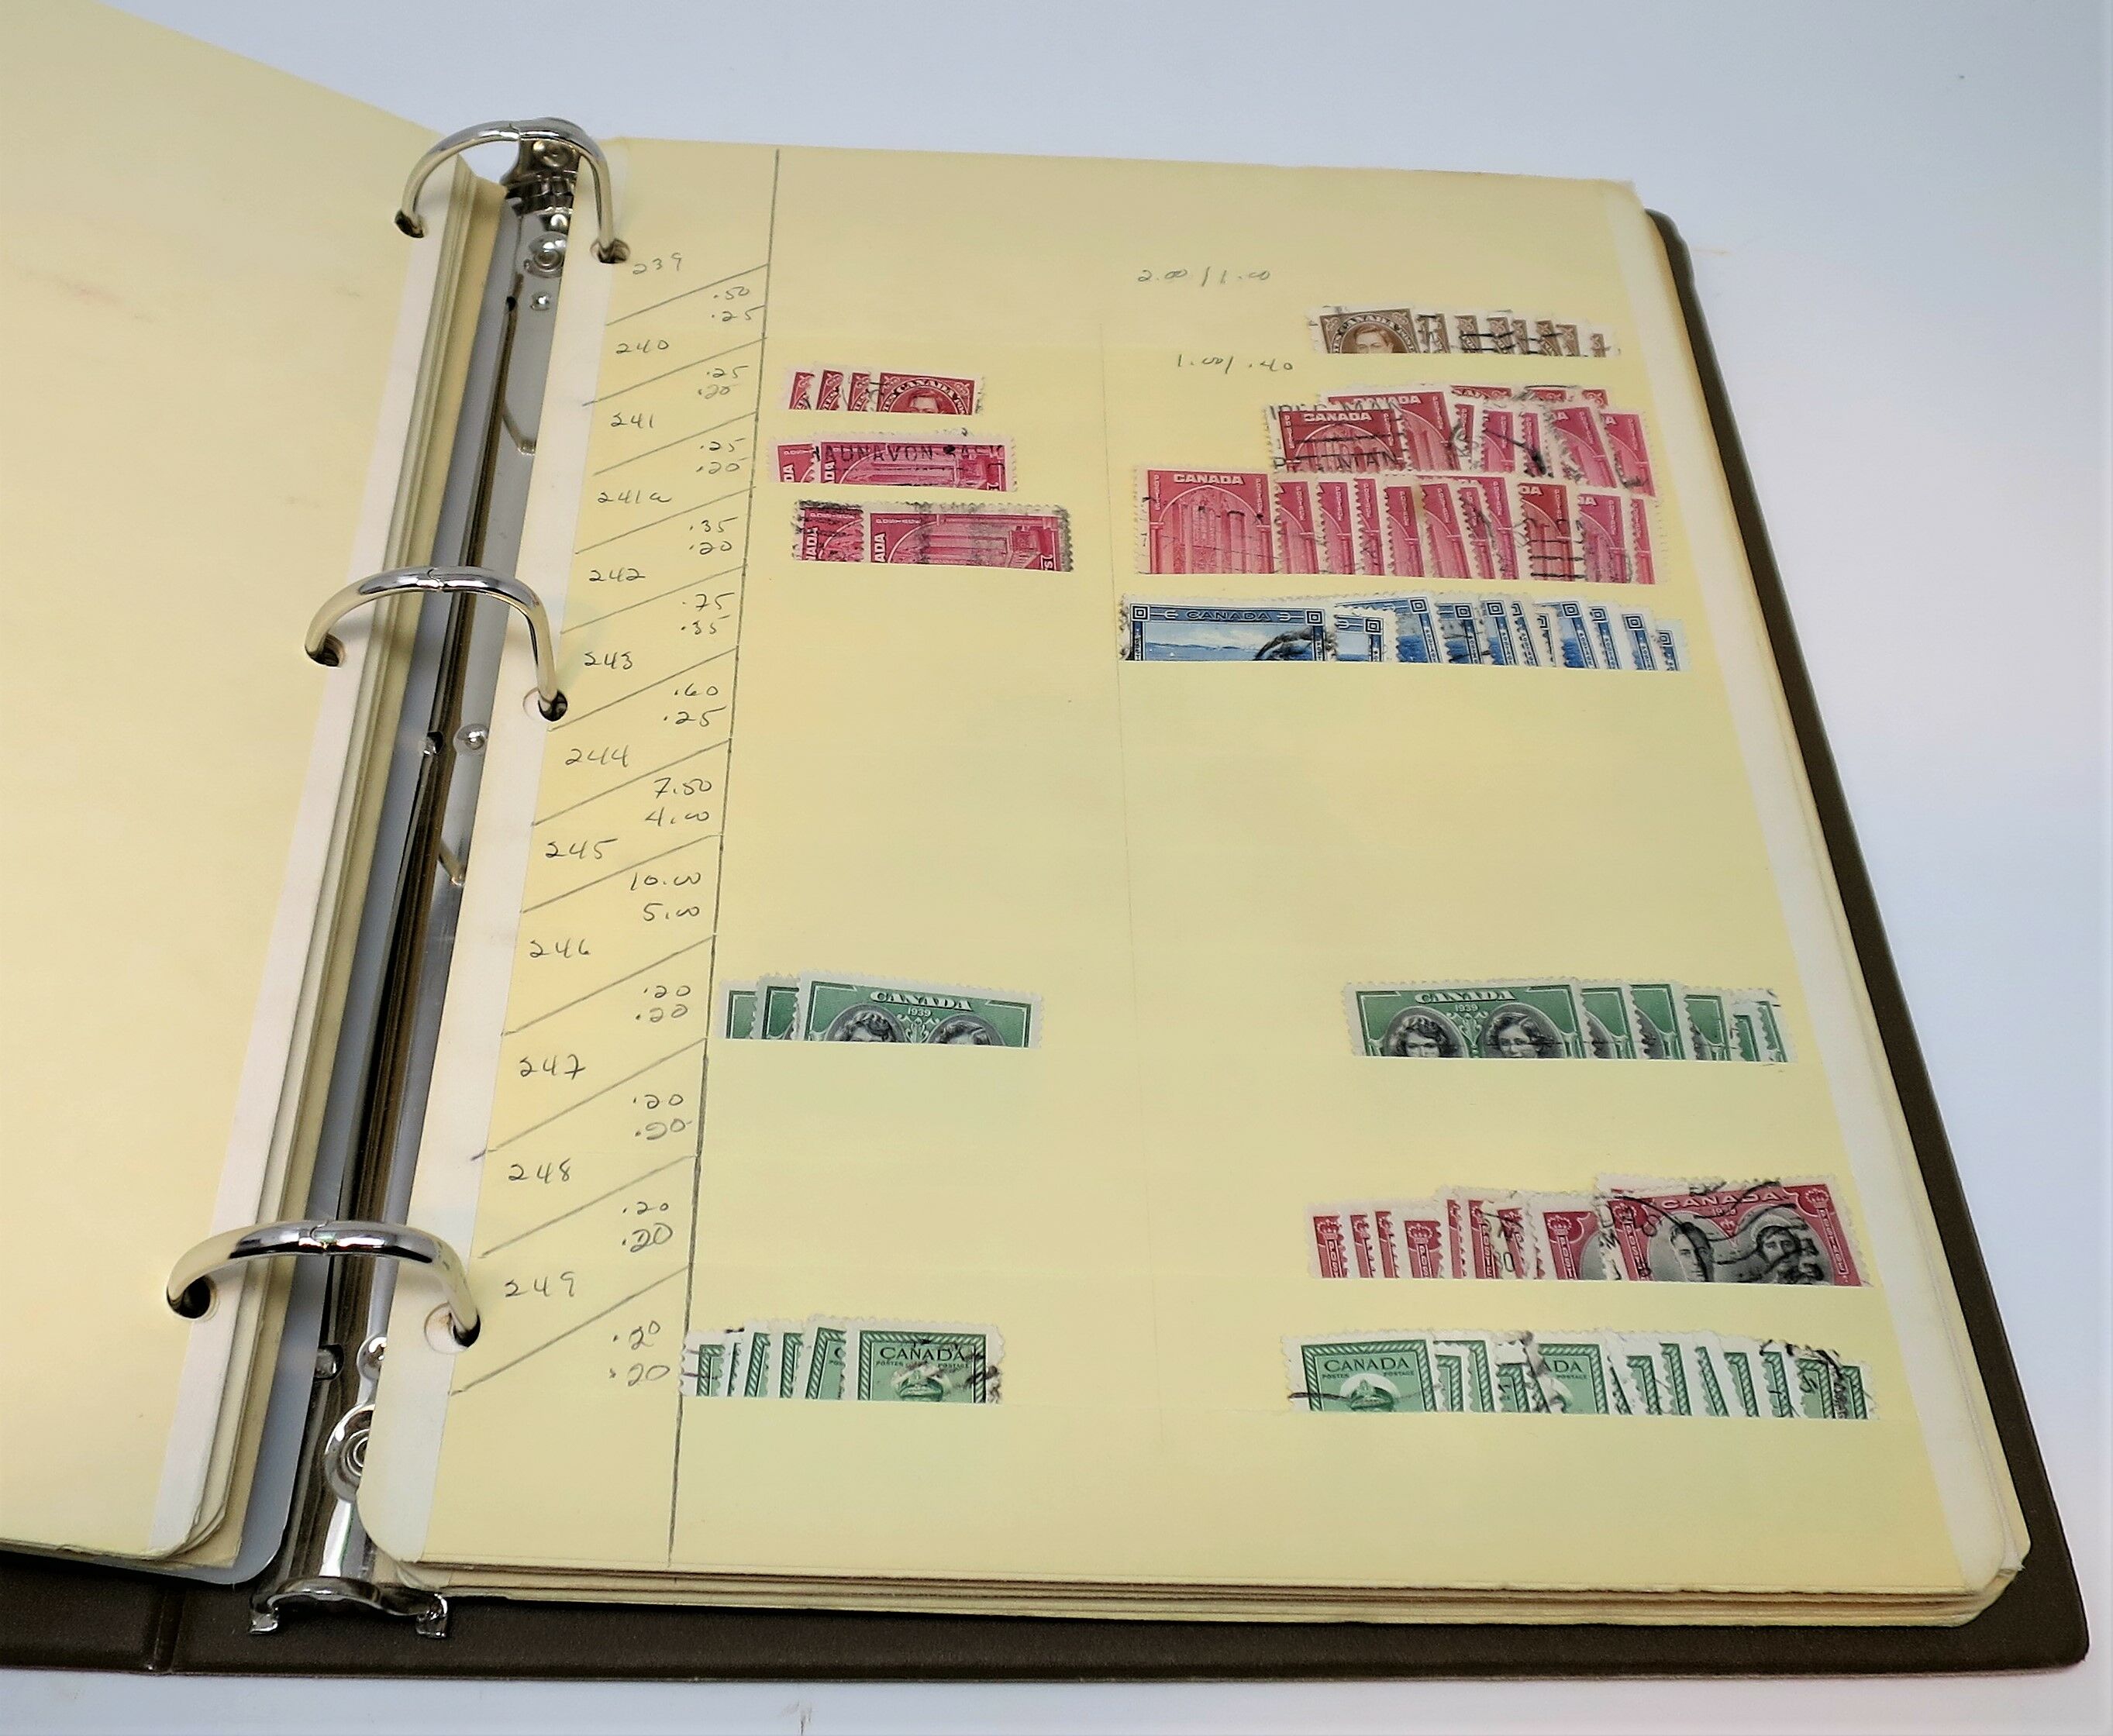 239
2.00 / 1.00
.50
.25
240
1.00/ .40
.25
.20
CANADA
241
.25
.20
CANADA
AUNAVON SASK
MAN
241a
.35
.20
CANADA
242
.75
.35
CANADA
243
.60
.25
244
7.50
4.00
245
10.00
5.00
246
.20
.20
CANADA
1939
CANADA
1939
247
.20
.20
248
.20
.20
CANADA
249
.20
.20
CANADA
POSTES POSTAGE
CANADA
POSTES POSTAGE
ADA